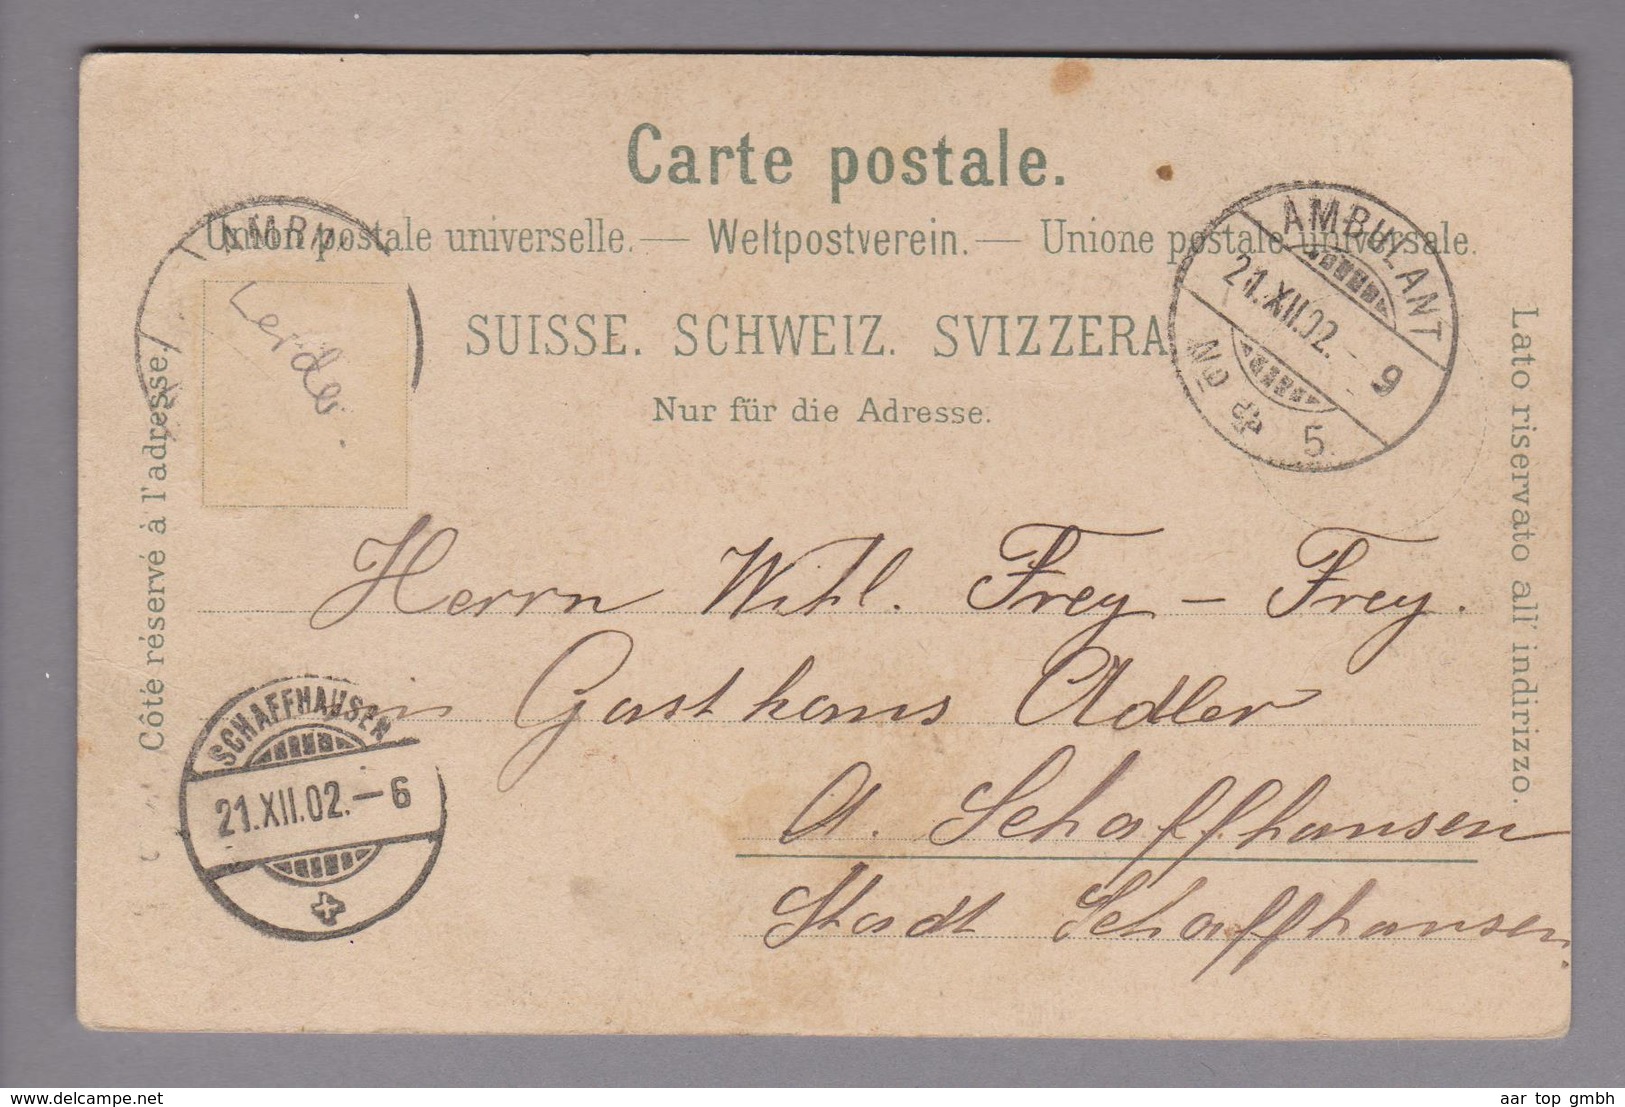 Carte postale.
Union postale universelle. — Weltpostverein. — Unione postale universale.
SUISSE. SCHWEIZ. SVIZZERA
Nur für die Adresse.
Côté réservé à l'adresse.
Lato riservato all' indirizzo.
AMBULANT
21.XII.02. – 9
No 5.
Herrn Wilh. Frey – Frey.
in Gasthaus Adler
a. Schaffhausen
Stadt Schaffhausen.
SCHAFFHAUSEN
21.XII.02. – 6
www.delcampe.net
aar top gmbh